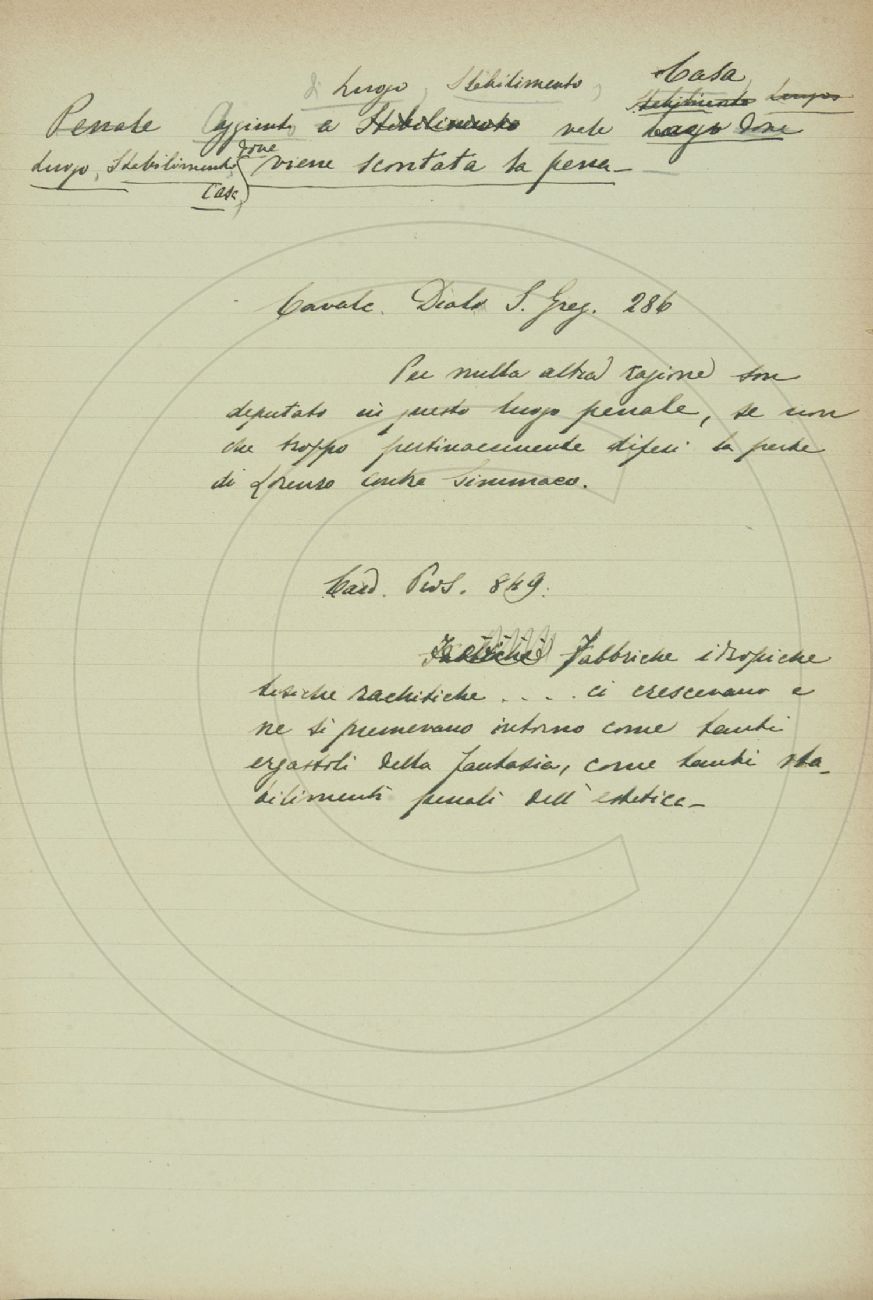 di Luogo, Stabilimento, Casa
Stabilimento Luogo
Penale Aggiunto a Stabilimento vale luogo dove
Luogo, Stabilimento dove viene scontata la pena_
Casa
Cavalc. Dialo S. Greg. 286
Per nulla altra ragione son
deputato in questo luogo penale, se non
che troppo pertinacemente difesi la parte
di Lorenzo contra Simmaco.
Card. Pros. 849.
Fabbriche idropiche
tisiche rachitiche .... ci crescevano e
ne si premevano intorno come tanti
ergastoli della fantasia, come tanti sta_
bilimenti penali dell'estetica_